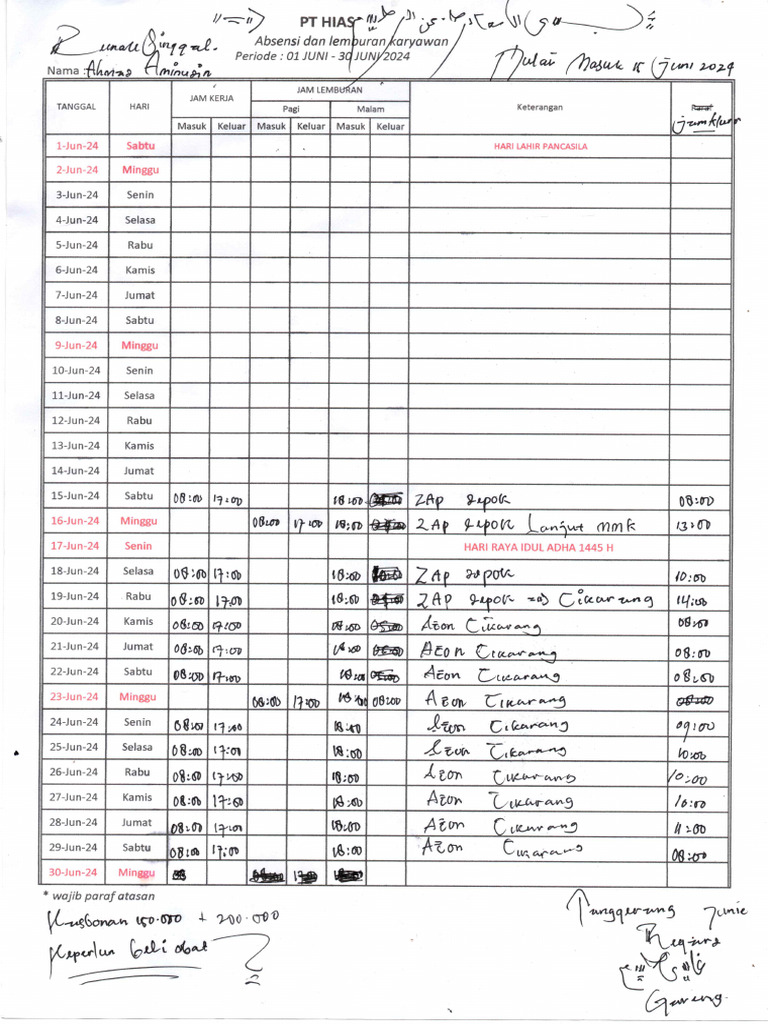 PT HIAS
Absensi dan lemburan karyawan
Periode : 01 JUNI - 30 JUNI 2024
Mulai Masuk 15 Juni 2024
Nama : Ahmad
TANGGAL HARI JAM KERJA JAM LEMBURAN Keterangan
Pagi Malam
Masuk Keluar Masuk Keluar Masuk Keluar
1-Jun-24 Sabtu HARI LAHIR PANCASILA
2-Jun-24 Minggu
3-Jun-24 Senin
4-Jun-24 Selasa
5-Jun-24 Rabu
6-Jun-24 Kamis
7-Jun-24 Jumat
8-Jun-24 Sabtu
9-Jun-24 Minggu
10-Jun-24 Senin
11-Jun-24 Selasa
12-Jun-24 Rabu
13-Jun-24 Kamis
14-Jun-24 Jumat
15-Jun-24 Sabtu 08:00 17:00 18:00 ZAP depok 08:00
16-Jun-24 Minggu 08:00 17:00 18:00 ZAP depok Lanjut MMK 13:00
17-Jun-24 Senin HARI RAYA IDUL ADHA 1445 H
18-Jun-24 Selasa 08:00 17:00 18:00 ZAP depok 10:00
19-Jun-24 Rabu 08:00 17:00 18:00 ZAP depok => Cikarang 14:00
20-Jun-24 Kamis 08:00 17:00 18:00 Aeon Cikarang 08:00
21-Jun-24 Jumat 08:00 17:00 18:00 Aeon Cikarang 08:00
22-Jun-24 Sabtu 08:00 17:00 18:00 Aeon Cikarang 08:00
23-Jun-24 Minggu 08:00 17:00 18:00 08:00 Aeon Cikarang
24-Jun-24 Senin 08:00 17:00 18:00 Aeon Cikarang 09:00
25-Jun-24 Selasa 08:00 17:00 18:00 Aeon Cikarang 10:00
26-Jun-24 Rabu 08:00 17:00 18:00 Aeon Cikarang 10:00
27-Jun-24 Kamis 08:00 17:00 18:00 Aeon Cikarang 10:00
28-Jun-24 Jumat 08:00 17:00 18:00 Aeon Cikarang 11:00
29-Jun-24 Sabtu 08:00 17:00 18:00 Aeon Cikarang 08:00
30-Jun-24 Minggu
* wajib paraf atasan
Kasbonan 150.000 + 200.000
Keperlun beli obat
Tanggerang Junie